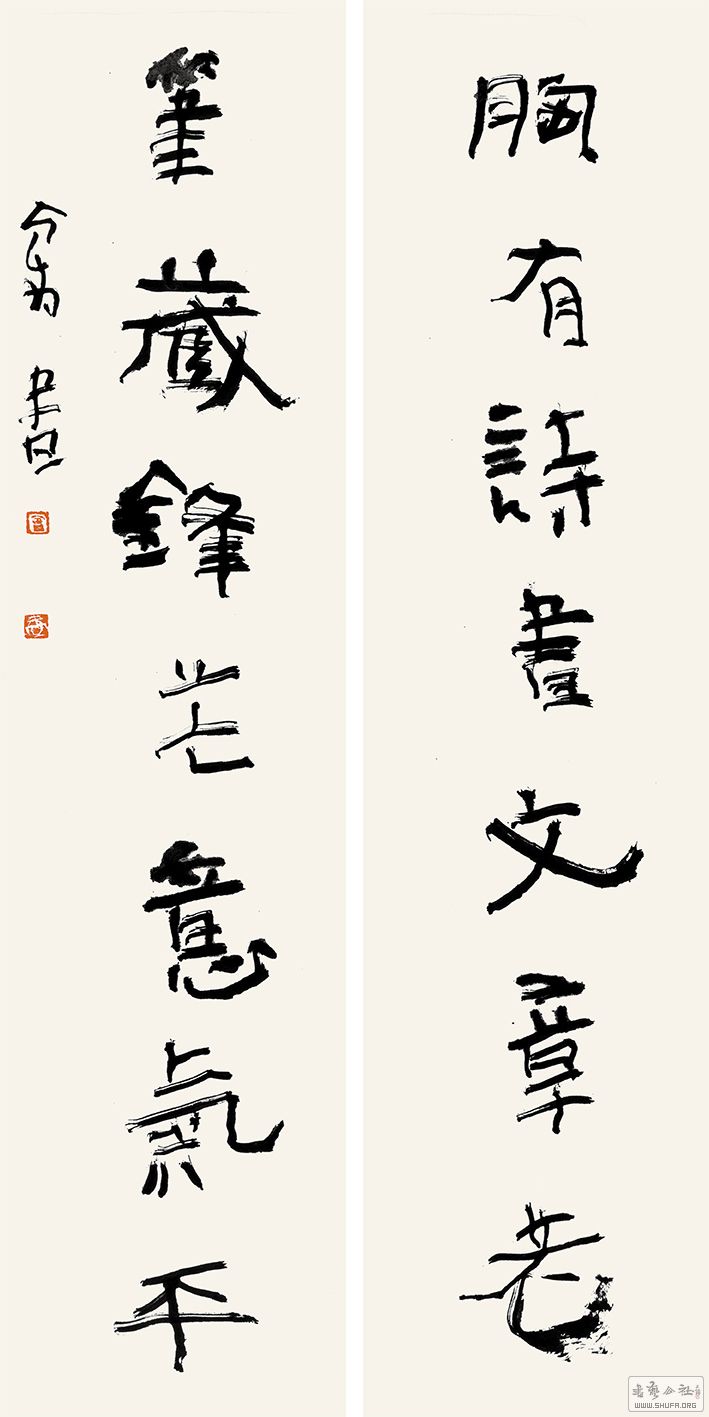 胸有詩書文章老
筆藏鋒芒意氣平
書
WWW.SHUFA.ORG